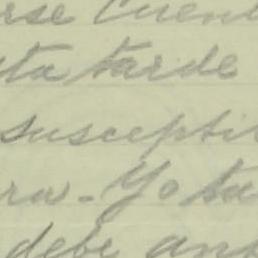 rse cuen
sta tarde
suscepti
ra - Yo ta
debe ant